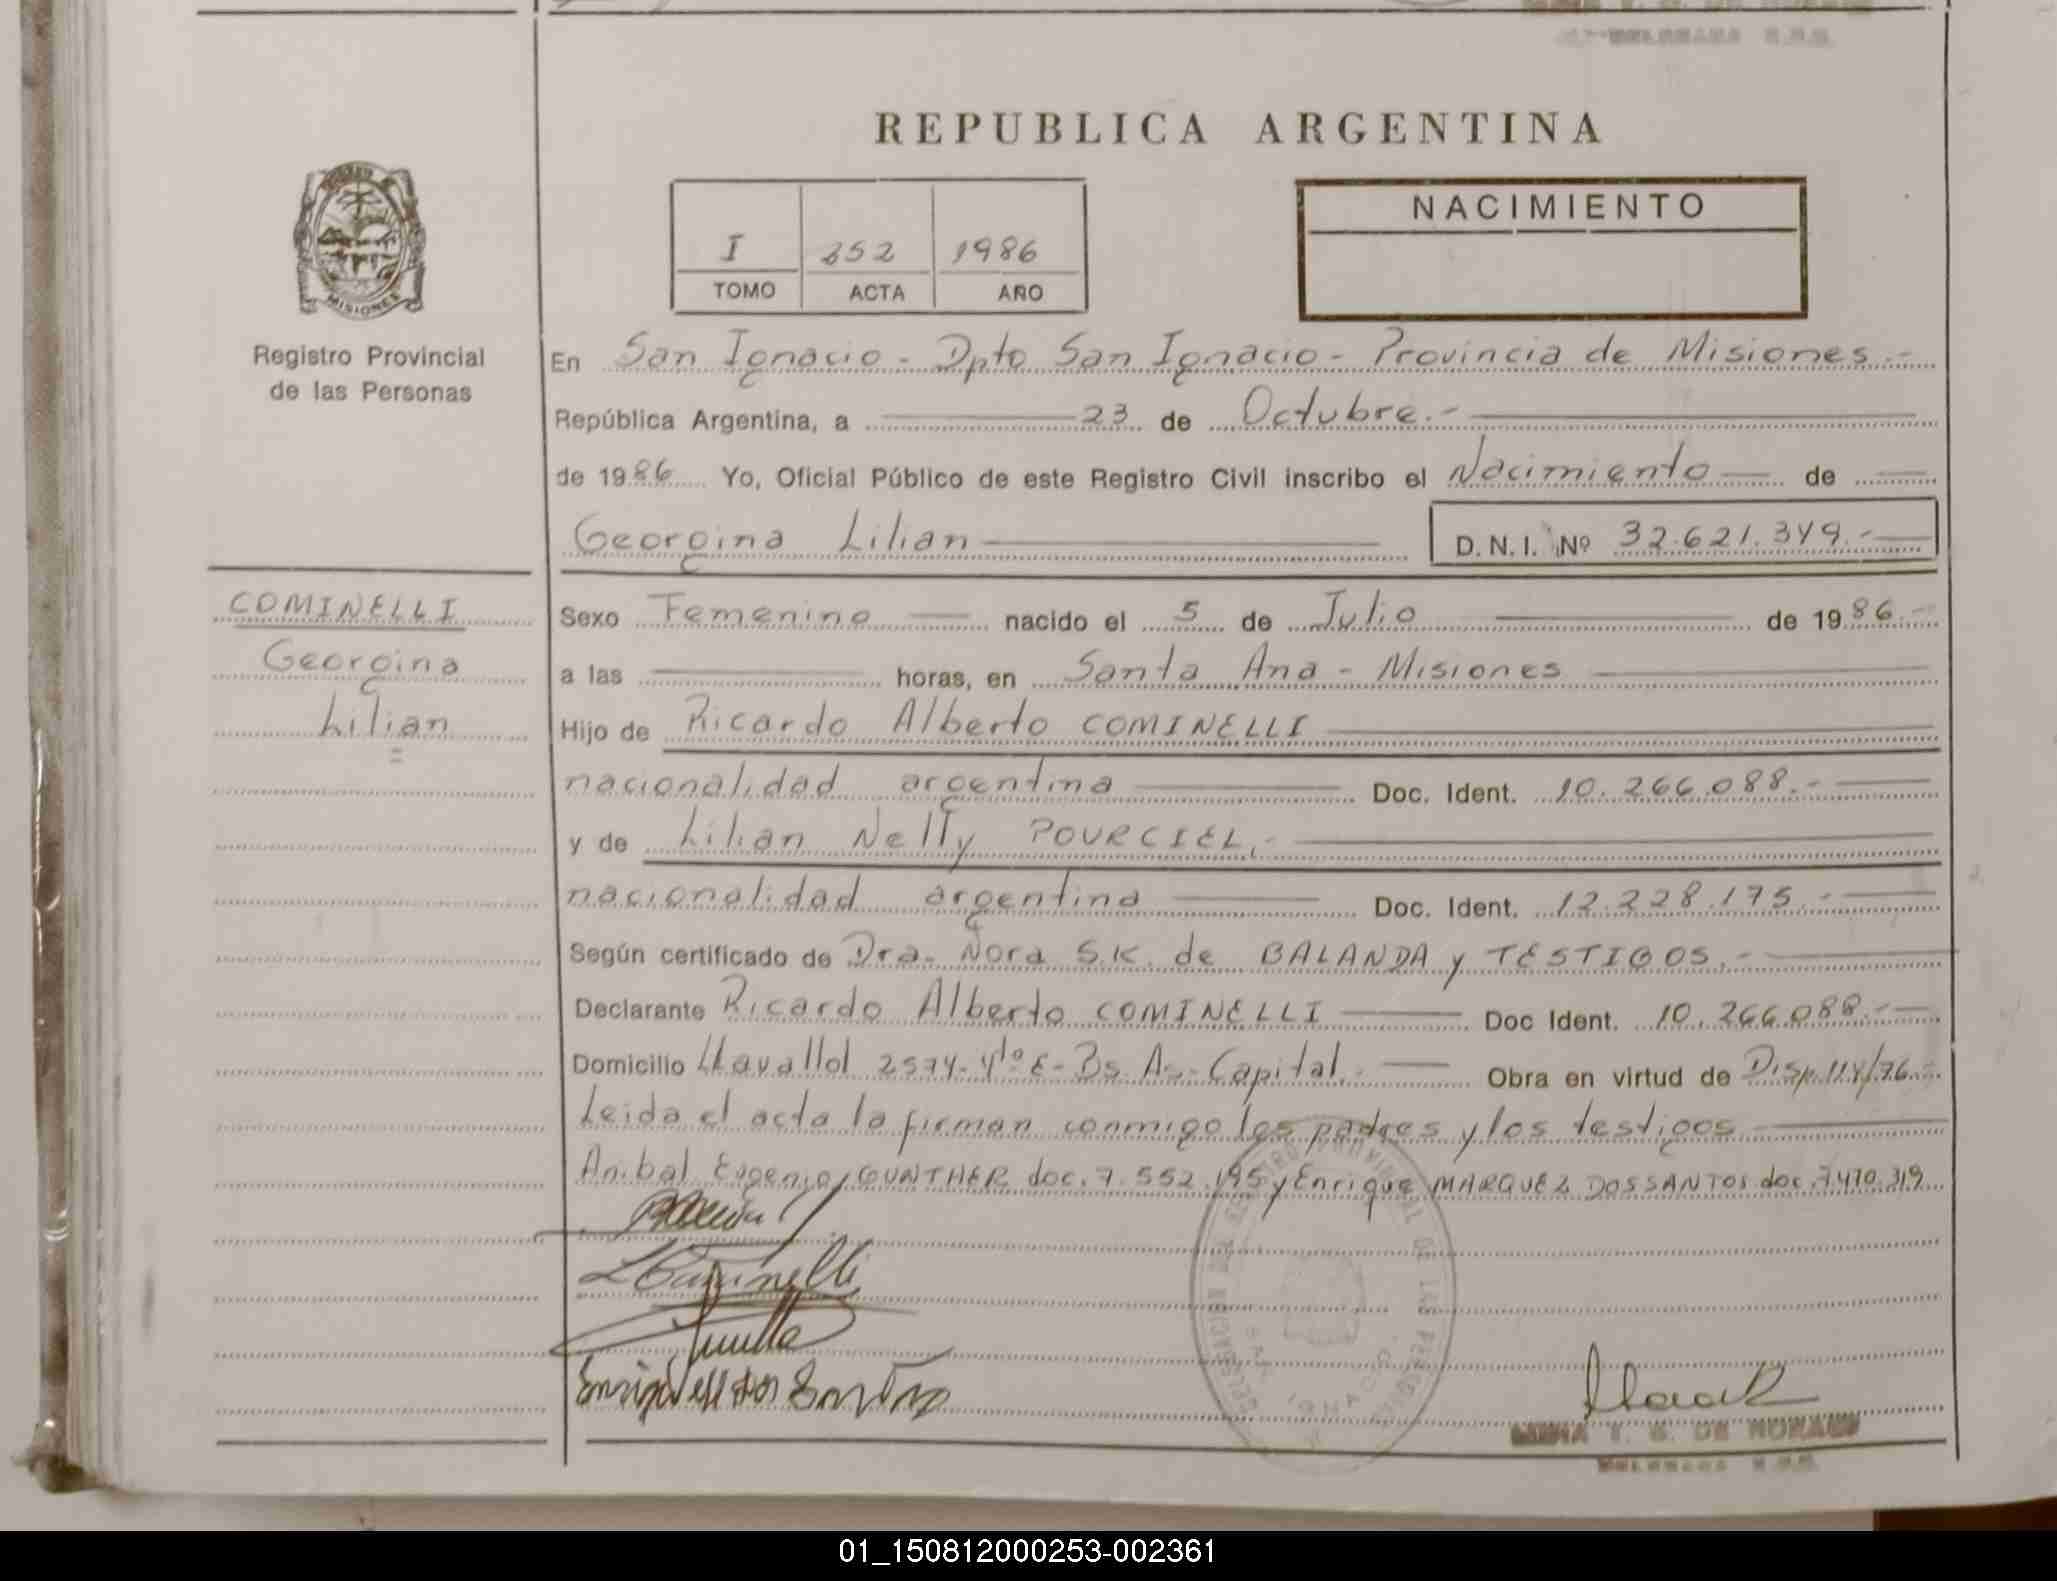 REPUBLICA ARGENTINA
NACIMIENTO
I 252 1986
TOMO ACTA AÑO
MISIONES
Registro Provincial
de las Personas
En San Ignacio - Dpto San Ignacio - Provincia de Misiones.-
República Argentina, a 23 de Octubre.-
de 1986 Yo, Oficial Público de este Registro Civil inscribo el Nacimiento de
Georgina Lilian D.N.I. Nº 32.621.349.-
COMINELLI
Georgina
Lilian
Sexo Femenino nacido el 5 de Julio de 1986.-
a las horas, en Santa Ana - Misiones
Hijo de Ricardo Alberto COMINELLI
nacionalidad argentina Doc. Ident. 10.266.088.-
y de Lilian Nelly POURCIEL.-
nacionalidad argentina Doc. Ident. 12.228.175.-
Según certificado de Dra. Nora S.K. de BALANDA y TESTIGOS.-
Declarante Ricardo Alberto COMINELLI Doc Ident. 10.266.088.-
Domicilio Llavallol 2574-4to E-Bs. As-Capital.- Obra en virtud de Disp.114/76.-
Leida el acta la firman conmigo los padres y los testigos
Anibal Eugenio GUNTHER doc. 7.552.195 y Enrique MARQUEZ DOSSANTOS doc. 7.470.319
REGISTRO PROVINCIAL DE LAS PERSONAS
SAN IGNACIO
T. G. DE
01_150812000253-002361